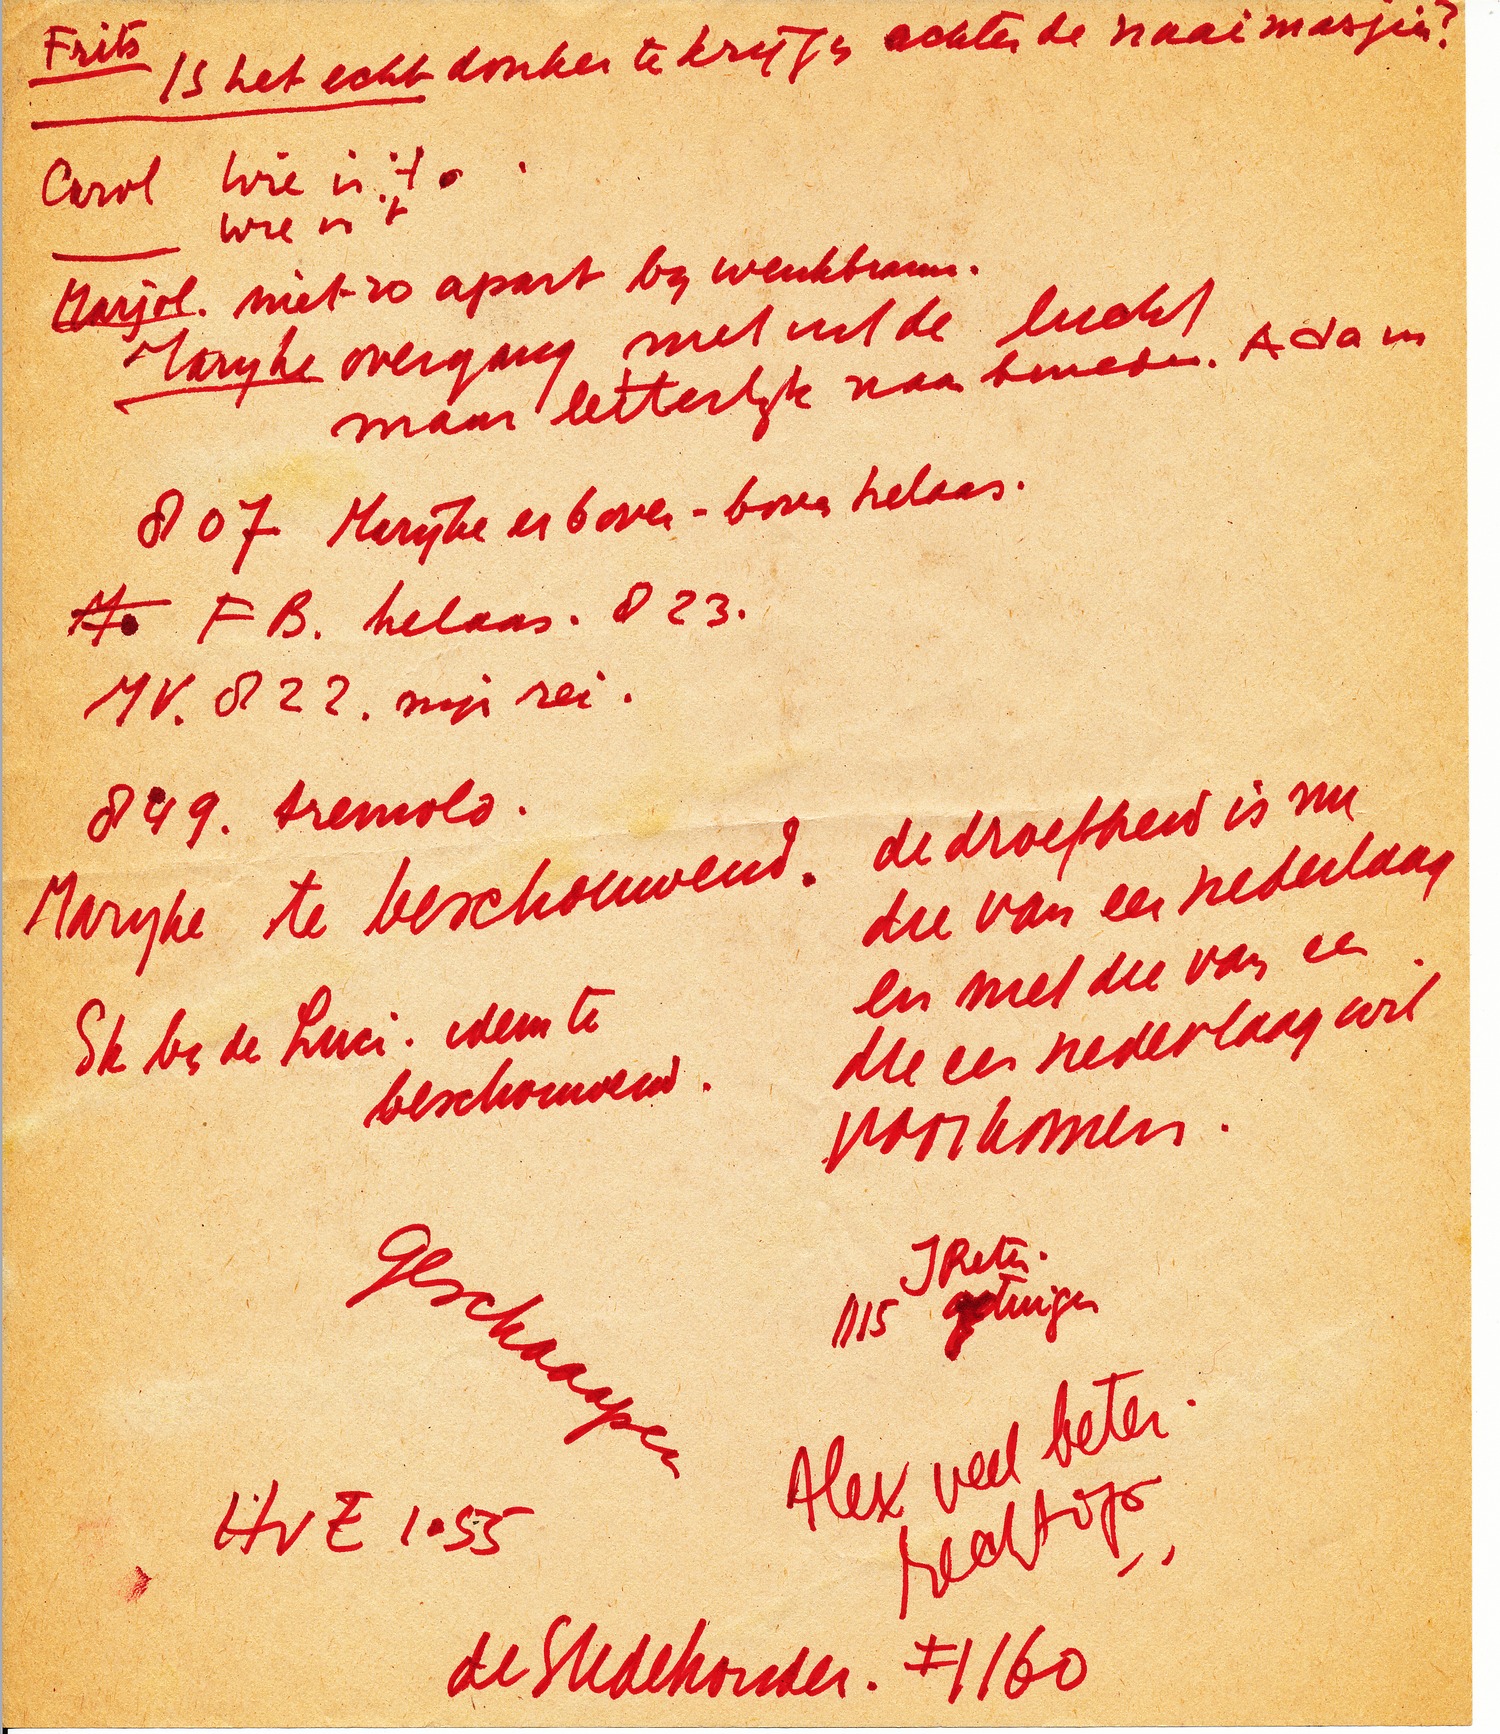 Frits Is het echt donker te krijgen achter de naaimasjien?
Carol Wie is 't
wie is 't
Marjol. niet zo apart bij wenkbrauw.
Maryke overgang niet uit de lucht
maar letterlijk naar beneden. Adam
807 Maryke er boven - boven helaas.
FB. helaas. 823.
MV. 822. mij rei.
849. tremolo.
Maryke te beschouwend.
Sk bij de Luci. idem te
beschouwend.
de droefheid is nu
die van een nederlaag
en niet die van een
die een nederlaag wil
voorkomen.
Geschaapen
1115 getuigen
Alex veel beter.
rechtop
HvE 1.55
de Stedehouder. ≠1160